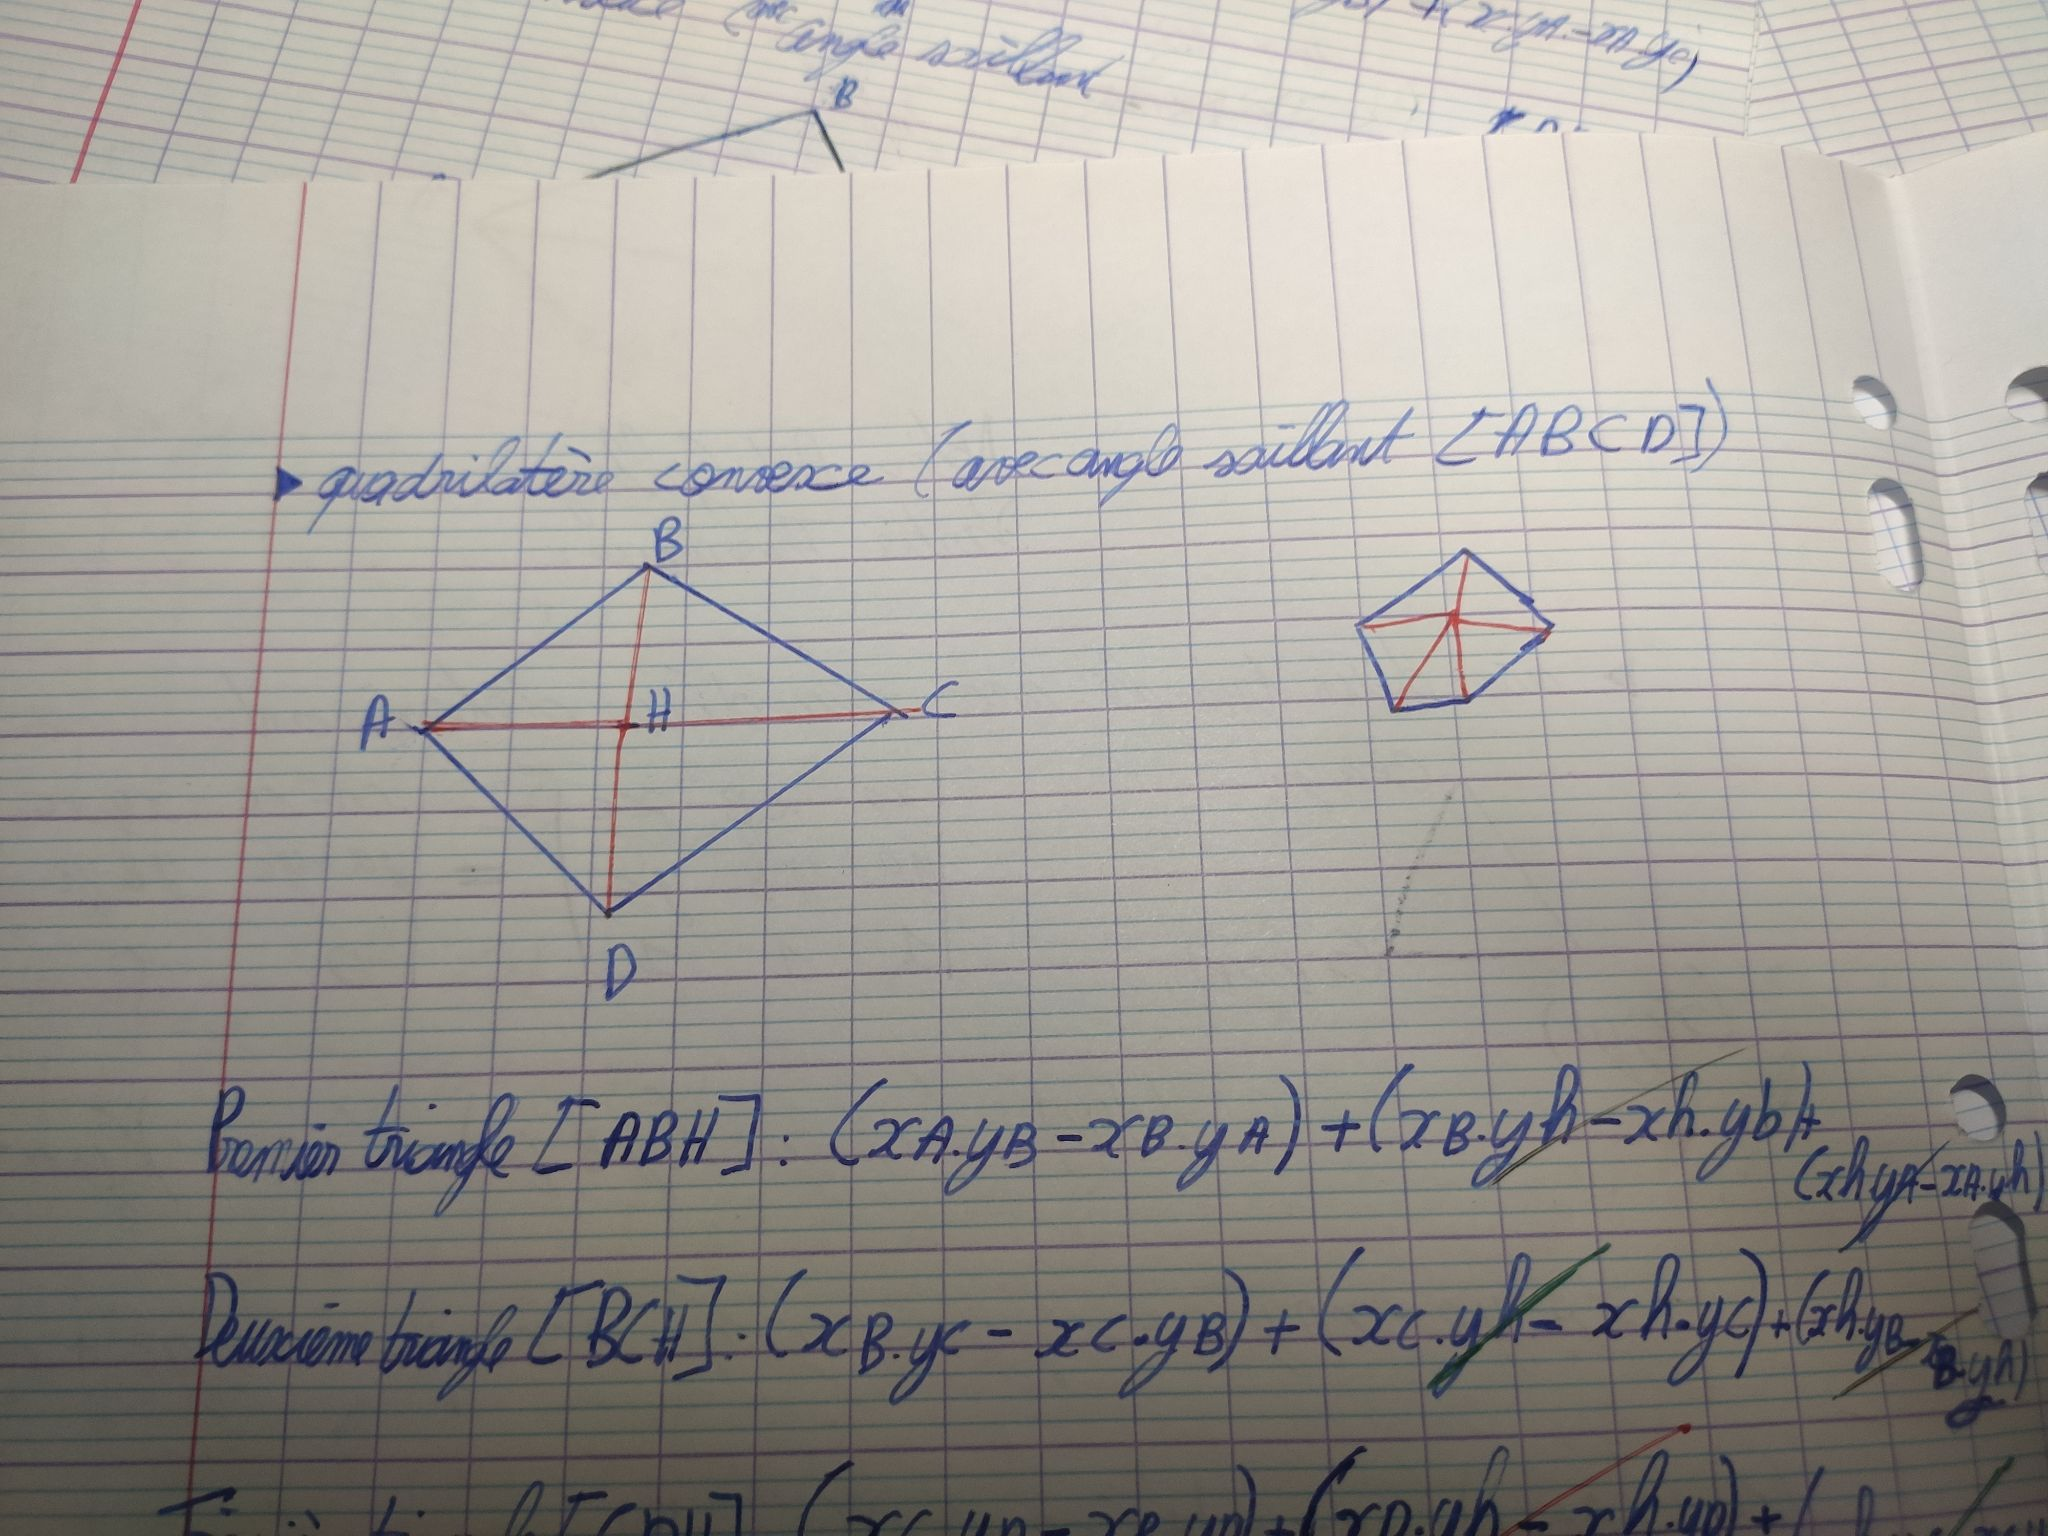 angle saillant
B
▶ quadrilatère convexe (avec angle saillant [ABCD])
B
A
H
C
D
Premier triangle [ABH] : (xA.yB - xB.yA) + (xB.yh - xh.yb) +
(xh yA - xA.yh)
Deuxième triangle [BCH] : (xB.yC - xC.yB) + (xC.yh - xh.yC) + (xh.yB -
B.yh)
[CDH] (xC.yD - xD.yD) + (xD.yh - xh.yD) + (